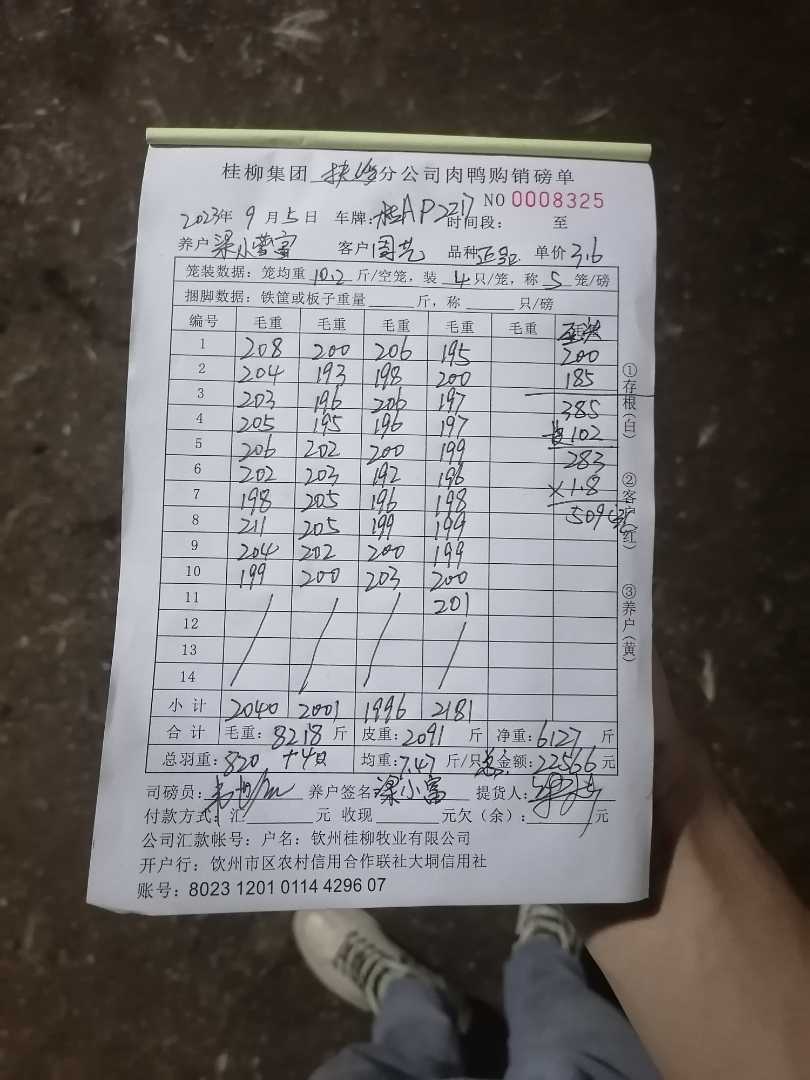 桂柳集团 分公司肉鸭购销磅单
NO 0008325
2023年 9 月 5 日 车牌: 桂AP2217 时间段: 至
养户 梁小富 客户 周艺 品种 单价 3.6
笼装数据: 笼均重 10.2 斤/空笼, 装 4 只/笼, 称 5 笼/磅
捆脚数据: 铁筐或板子重量 斤, 称 只/磅
编号 毛重 毛重 毛重 毛重 毛重
1 208 200 206 195 200
2 204 193 198 200 185
3 203 196 206 197 385
4 205 195 196 197 102
5 206 202 200 199 283
6 202 203 192 196 ×1.8
7 198 205 196 198 509
8 211 205 199 199
9 204 202 200 199
10 199 200 203 200
11 201
12
13
14
小计 2040 2001 1996 2181
合计 毛重: 8218 斤 皮重: 2091 斤 净重: 6127 斤
总羽重: 820 +4只 均重: 7.47 斤/只 总金额: 22566 元
司磅员: 养户签名: 梁小富 提货人:
付款方式: 汇 元 收现 元欠(余): 元
公司汇款帐号: 户名: 钦州桂柳牧业有限公司
开户行: 钦州市区农村信用合作联社大垌信用社
账号: 8023 1201 0114 4296 07
①存根(白)
②客户(红)
③养户(黄)